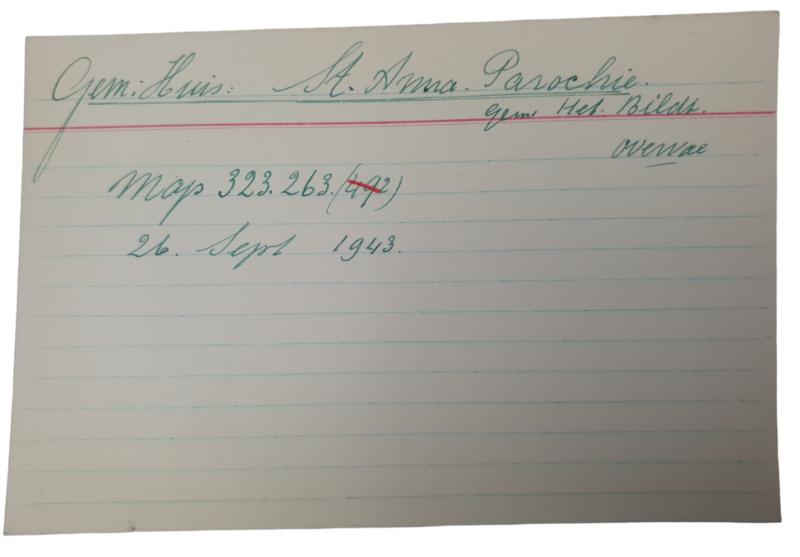 Gem: Huis: St. Anna. Parochie.
gem Het. Bildt.
overval
map 323.263. (492)
26. Sept 1943.